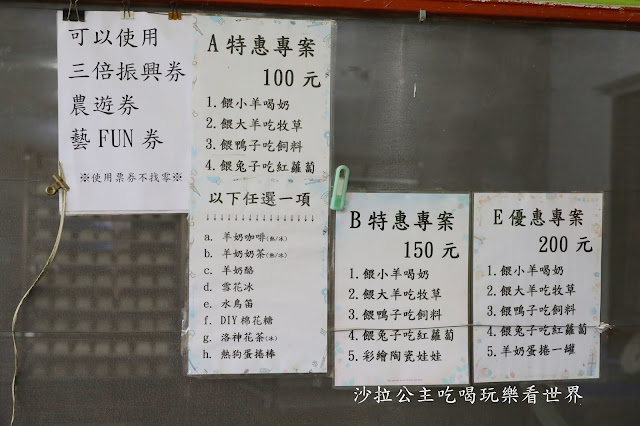 可以使用
三倍振興券
農遊券
藝FUN券
※使用票券不找零※
A特惠專案
100元
1.餵小羊喝奶
2.餵大羊吃牧草
3.餵鴨子吃飼料
4.餵兔子吃紅蘿蔔
以下任選一項
↓↓↓↓↓↓↓↓↓↓↓↓
a. 羊奶咖啡(熱/冰)
b. 羊奶奶茶(熱/冰)
c. 羊奶酪
d. 雪花冰
e. 水鳥笛
f. DIY棉花糖
g. 洛神花茶(冰)
h. 熱狗蛋捲棒
B特惠專案
150元
1.餵小羊喝奶
2.餵大羊吃牧草
3.餵鴨子吃飼料
4.餵兔子吃紅蘿蔔
5.彩繪陶瓷娃娃
E優惠專案
200元
1.餵小羊喝奶
2.餵大羊吃牧草
3.餵鴨子吃飼料
4.餵兔子吃紅蘿蔔
5.羊奶蛋捲一罐
沙拉公主吃喝玩樂看世界